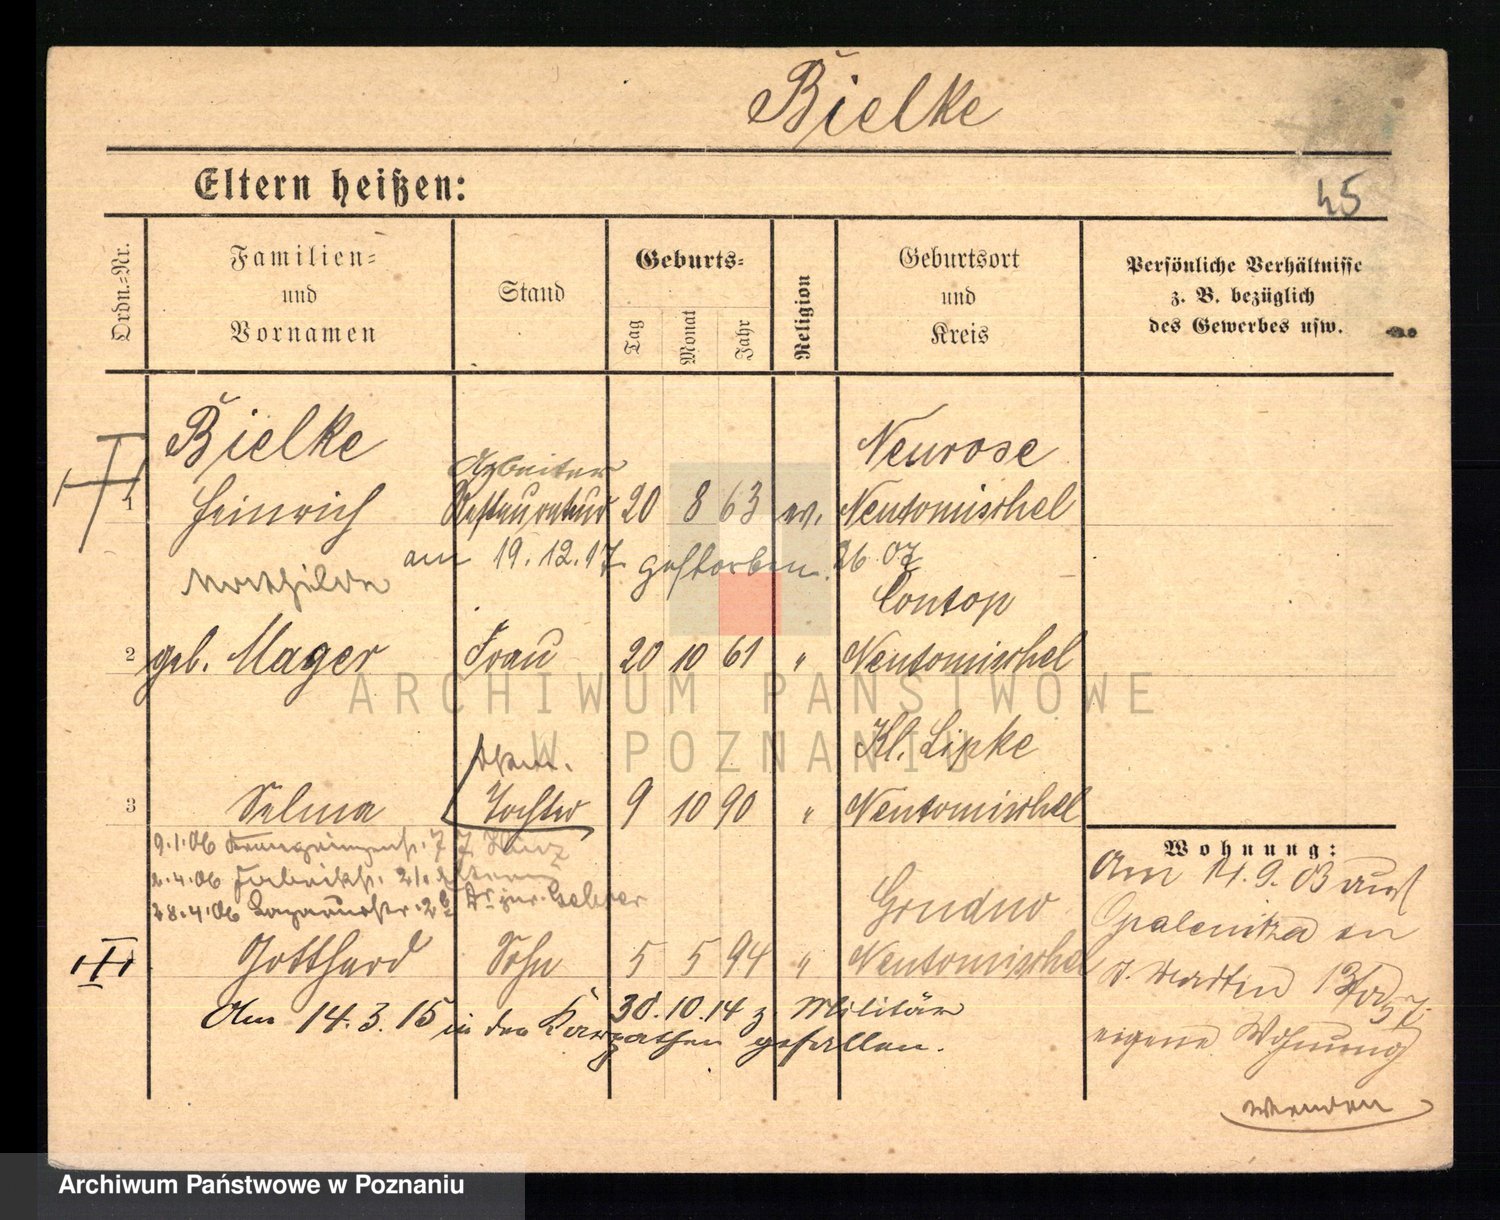 Bielke
Eltern heißen:
45
Ordn.=Nr.
Familien=
und
Vornamen
Stand
Geburts=
Tag
Monat
Jahr
Religion
Geburtsort
und
Kreis
Persönliche Verhältnisse
z. B. bezüglich
des Gewerbes usw.
Bielke
Neurose
Arbeiter
1 Heinrich Restaurateur 20 8 63 ev. Neutomischel
am 19.12.17 gestorben.
Mathilde
Contop
2 geb. Mager Frau 20 10 61 " Neutomischel
Kl. Lipke
3 Selma Tochter 9 10 90 " Neutomischel
9.1.06
2.4.06
28.4.06
Wohnung:
Am 14.9.03 aus
Opalenitza in
Grudno
Gotthard Sohn 5 5 94 " Neutomischel
St. Martin
eigene Wohnung
30.10.14 z. Militär
Am 14.3.15 in den Karpathen gefallen.
wenden
ARCHIWUM PAŃSTWOWE
W POZNANIU
Archiwum Państwowe w Poznaniu